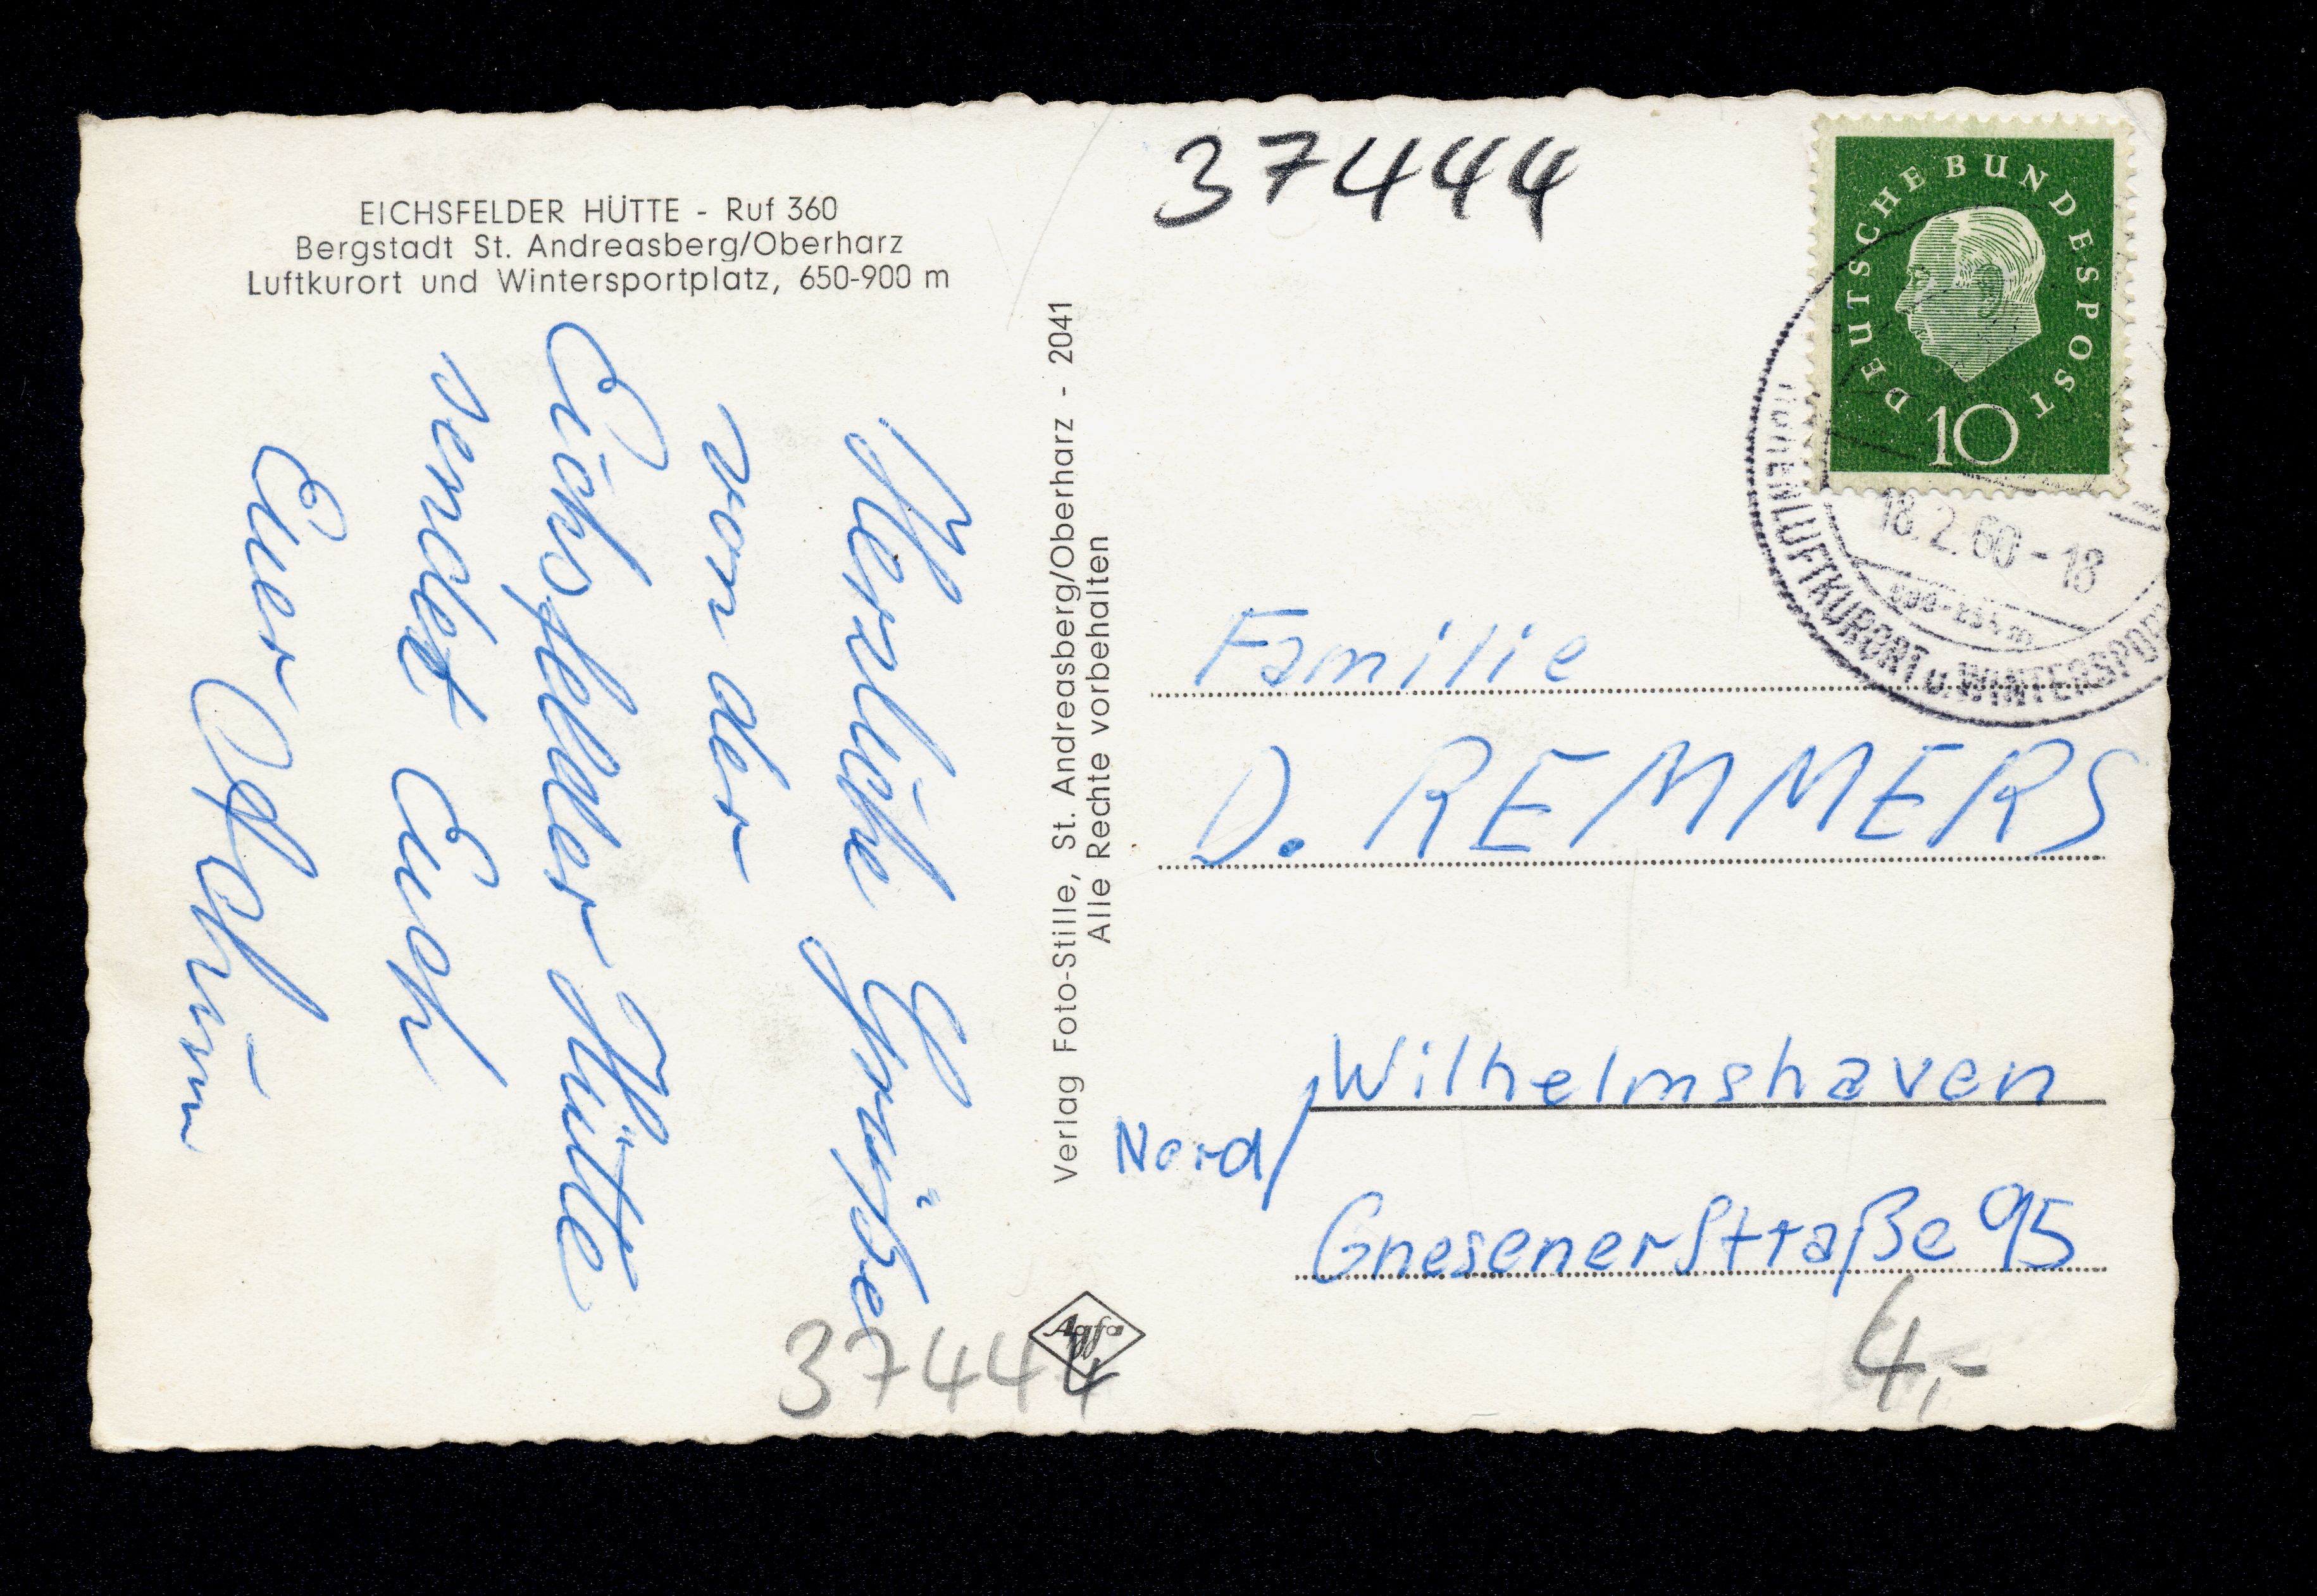 EICHSFELDER HÜTTE - Ruf 360
Bergstadt St. Andreasberg/Oberharz
Luftkurort und Wintersportplatz, 650-900 m
Herzliche Grüße
von der
Eichsfelder Hütte
sendet Euch
Euer
Verlag Foto-Stille, St. Andreasberg/Oberharz - 2041
Alle Rechte vorbehalten
37444
DEUTSCHE BUNDESPOST
10
18.2.60-18
HÖHENLUFTKURORT u. WINTERSPOR
Familie
D. REMMERS
Wilhelmshaven
Nord/
Gnesenerstraße 95
Agfa
37444
4,-